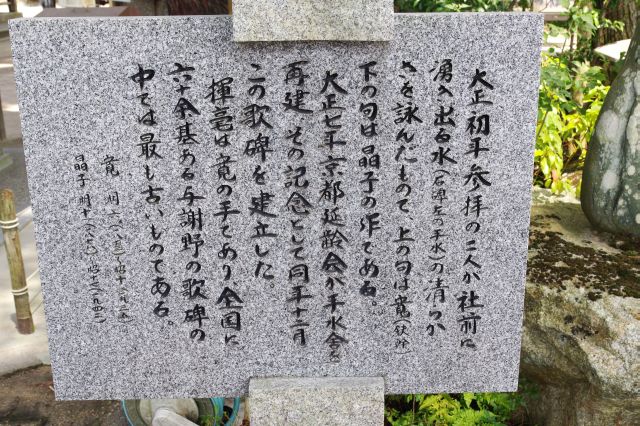 大正初年参拝の二人が社前に
湧き出る水(石碑左の手水)の清らか
さを詠んだもので、上の句は寛(鉄幹)
下の句は晶子の作である。
大正七年京都延齢会が手水舎を
再建、その記念として同年十二月
この歌碑を建立した
揮毫は寛の手であり全国に
六十余基ある与謝野の歌碑の
中では最も古いものである。
寛 明六(一八七三)昭十(一九三五)
晶子 明十一(一八七八)昭十七(一九四二)